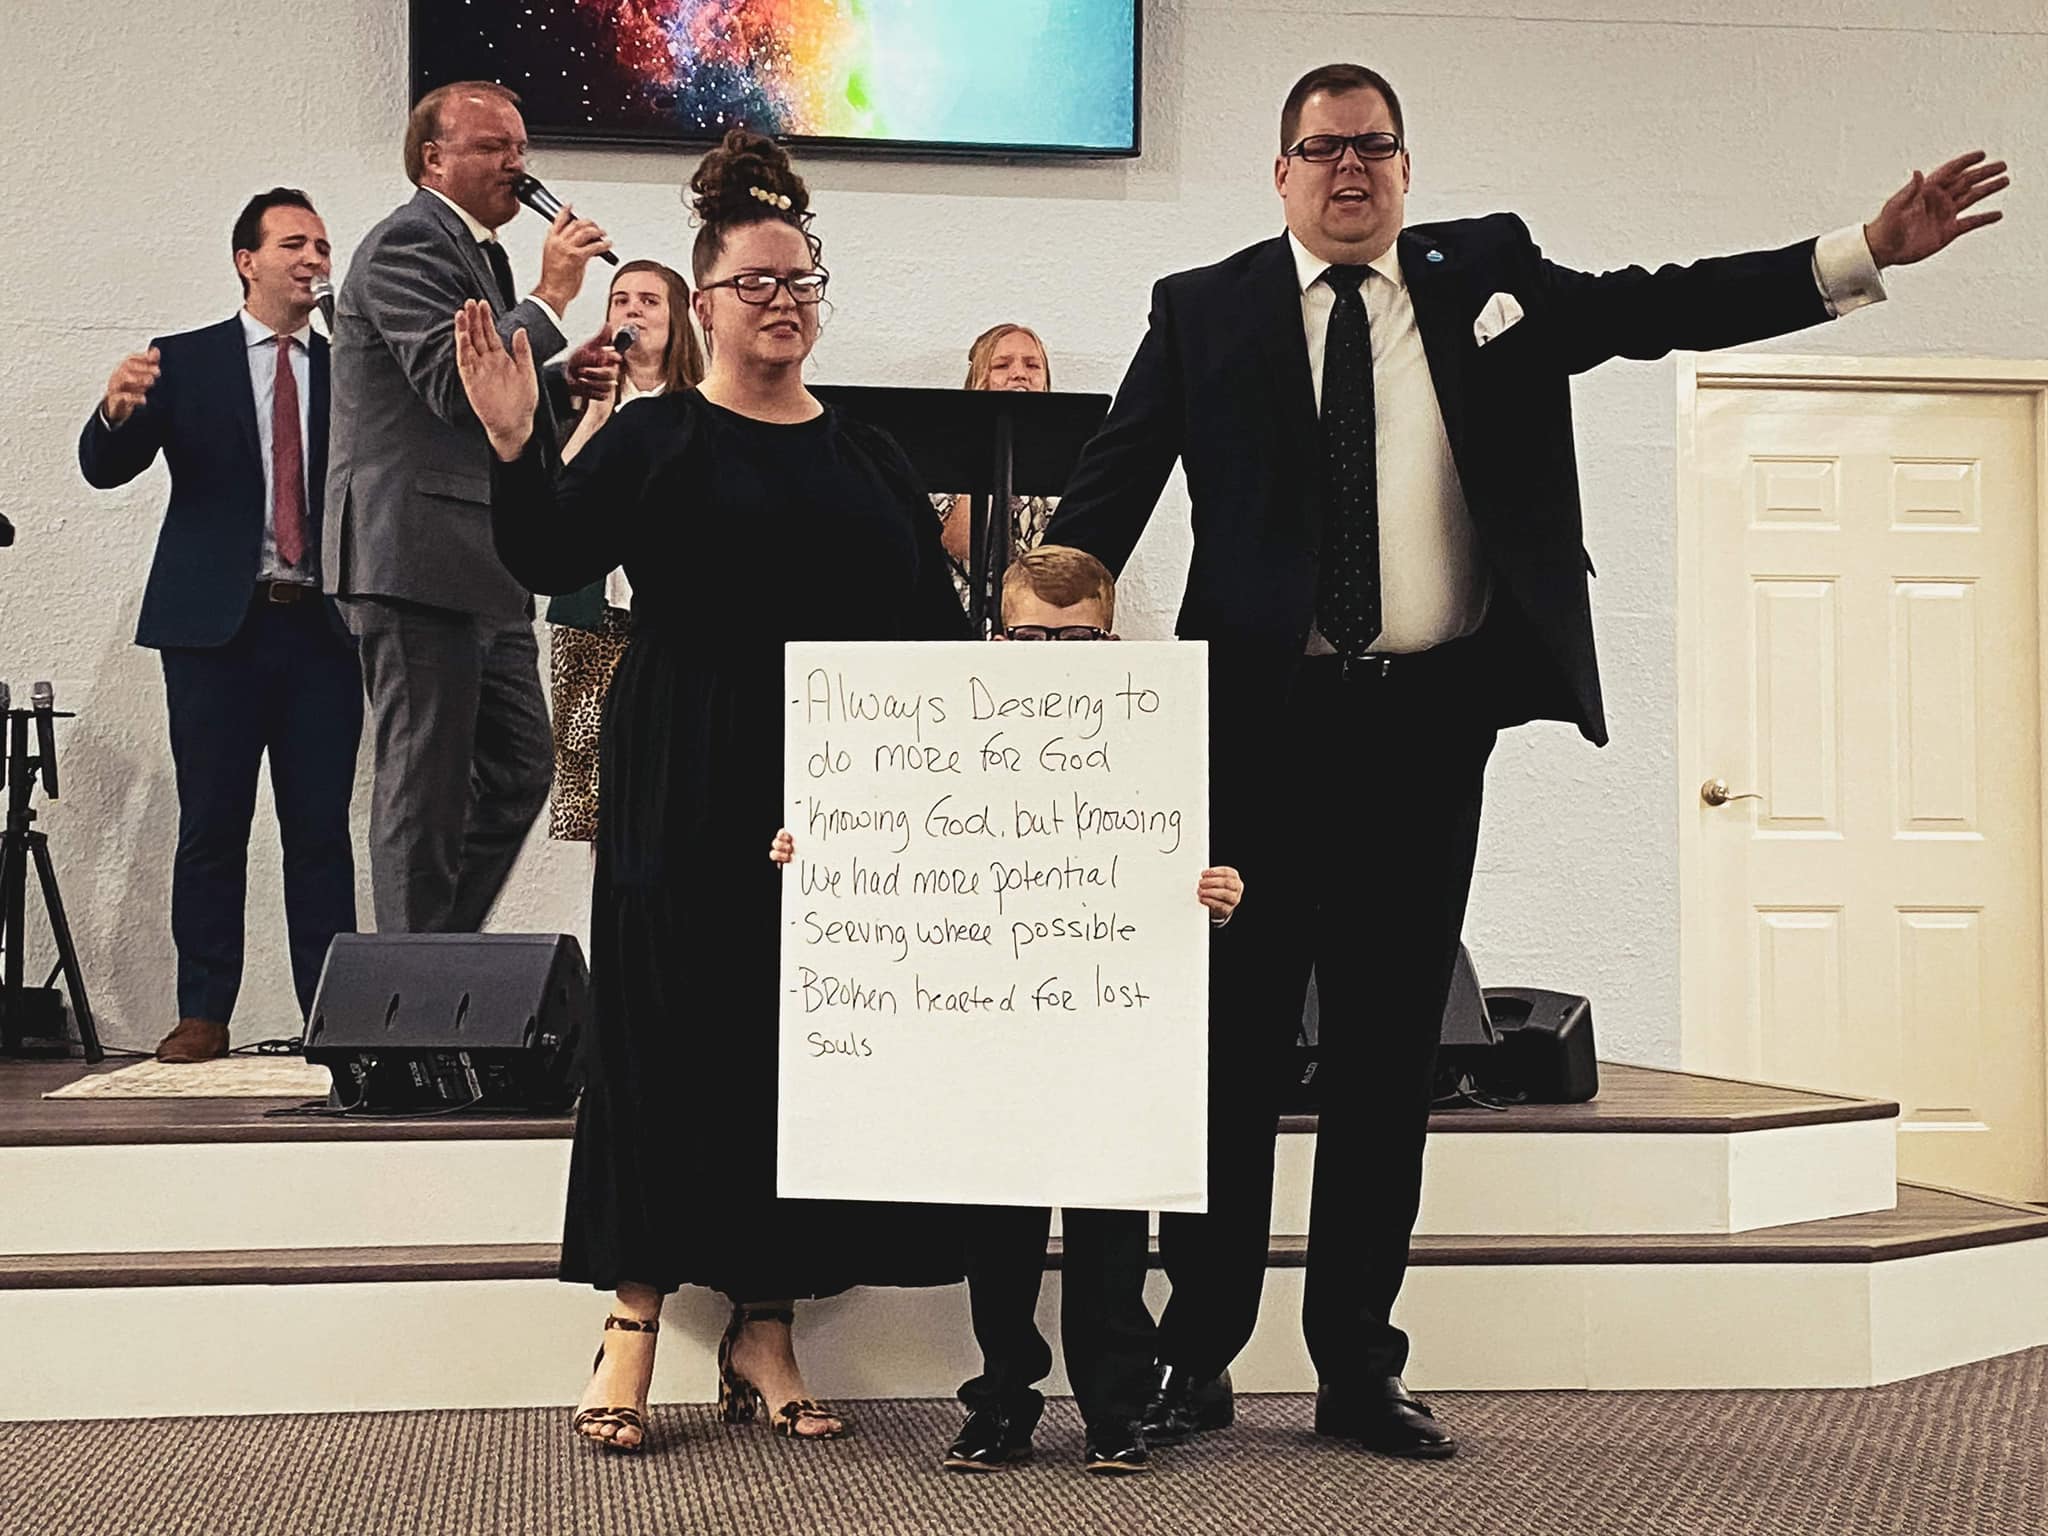 - Always Desiring to
do more for God
- Knowing God, but Knowing
We had more potential
- Serving where possible
- Broken hearted for lost
souls